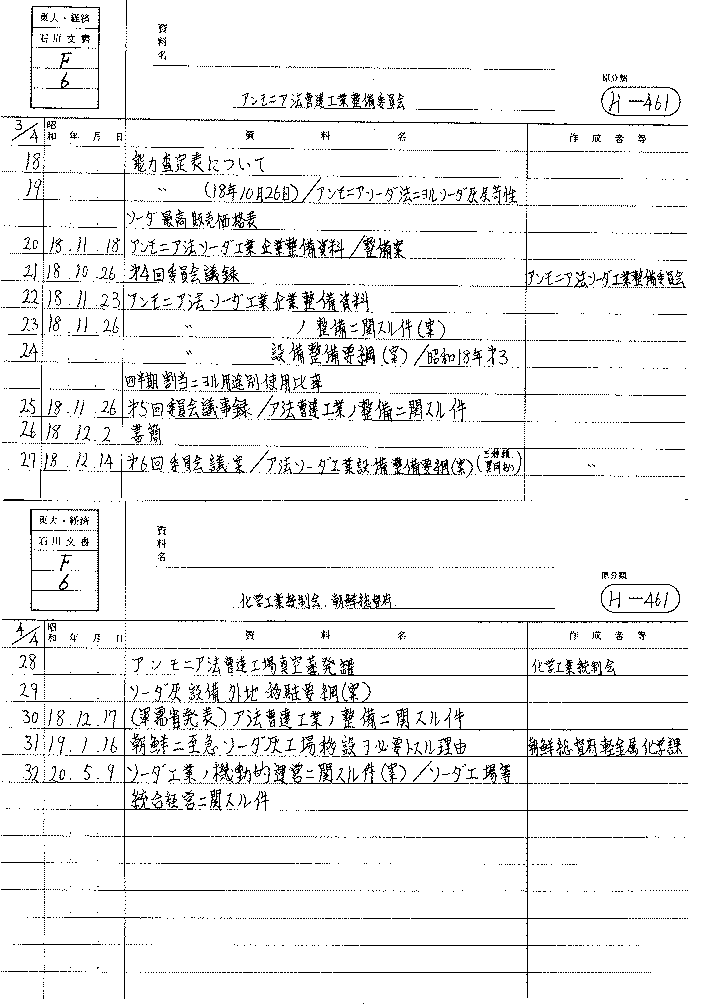 東大・経済
石川文書
F
6
資料名
アンモニア法曹達工業整備委員会
原分類
H-461
3/4 昭和 年 月 日 資料名 作成者等
18 能力査定表について
19 〃 (18年10月26日)/アンモニアソーダ法ニヨルソーダ灰及苛性
ソーダ最高販売価格表
20 18.11.18 アンモニア法ソーダ工業企業整備資料/整備案
21 18.10.26 第4回委員会議録 アンモニア法ソーダ工業整備委員会
22 18.11.23 アンモニア法ソーダ工業企業整備資料
23 18.11.26 〃 ノ整備ニ関スル件(案)
24 〃 設備整備要綱(案)/昭和18年第3
四半期割当ニヨル用途別使用比率
25 18.11.26 第5回委員会議事録/ア法曹達工業ノ整備ニ関スル件
26 18.12.2 書簡
27 18.12.14 第6回委員会議案/ア法ソーダ工業設備整備要綱(案) 〃
東大・経済
石川文書
F
6
資料名
化学工業統制会.朝鮮総督府
原分類
H-461
4/4 昭和 年 月 日 資料名 作成者等
28 アンモニア法曹達工場真空蒸発罐 化学工業統制会
29 ソーダ灰設備外地移駐要綱(案)
30 18.12.17 (軍需省発表)ア法曹達工業ノ整備ニ関スル件
31 19.1.16 朝鮮ニ至急ソーダ灰工場移設ヲ必要トスル理由 朝鮮総督府軽金属化学課
32 20.5.9 ソーダ工業ノ機動的運営ニ関スル件(案)/ソーダ工場等
統合経営ニ関スル件